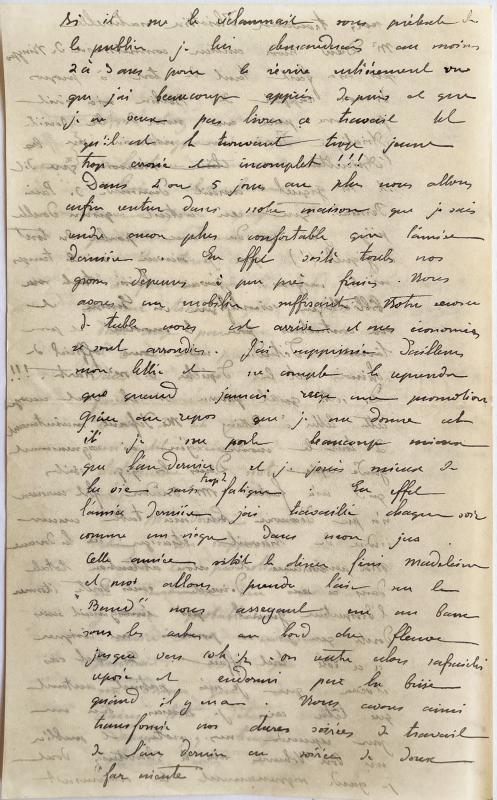 si il me le réclamait sous prétexte de
le publier je lui demanderais au moins
2 à 3 ans pour le récrire entièrement vu
que j'ai beaucoup appris depuis et que
je ne veux pas livrer ce travail tel
qu'il est le trouvant trop jeune
trop et incomplet !!!
Dans 4 ou 5 jours au plus nous allons
enfin rentrer dans notre maison que je vais
rendre encore plus confortable que l'année
dernière. En effet voilà toutes nos
grosses dépenses à peu près finies. Nous
avons un mobilier suffisant. Notre
de table est arrivé et mes économies
se sont arrondies. J'ai supprimé d'ailleurs
mon et ne compte le reprendre
que quand jamais une promotion
Grâce au repos que je me donne cet
été je me porte beaucoup mieux
que l'an dernier et je jouis mieux de
la vie sans trop? fatigue. En effet
l'année dernière j'ai travaillé chaque soir
comme un nègre dans mon jus.
Cette année sitôt le dîner fini Madeleine
et moi allons prendre l'air sur le
"Bund" nous asseyant sur un banc
sous les arbres au bord du fleuve
jusque vers on rentre alors rafraichis
reposé et endormi par la brise
quand il y en a. Nous avons ainsi
transformé nos dures soirées de travail
de l'an dernier en soirées de doux
"far niente